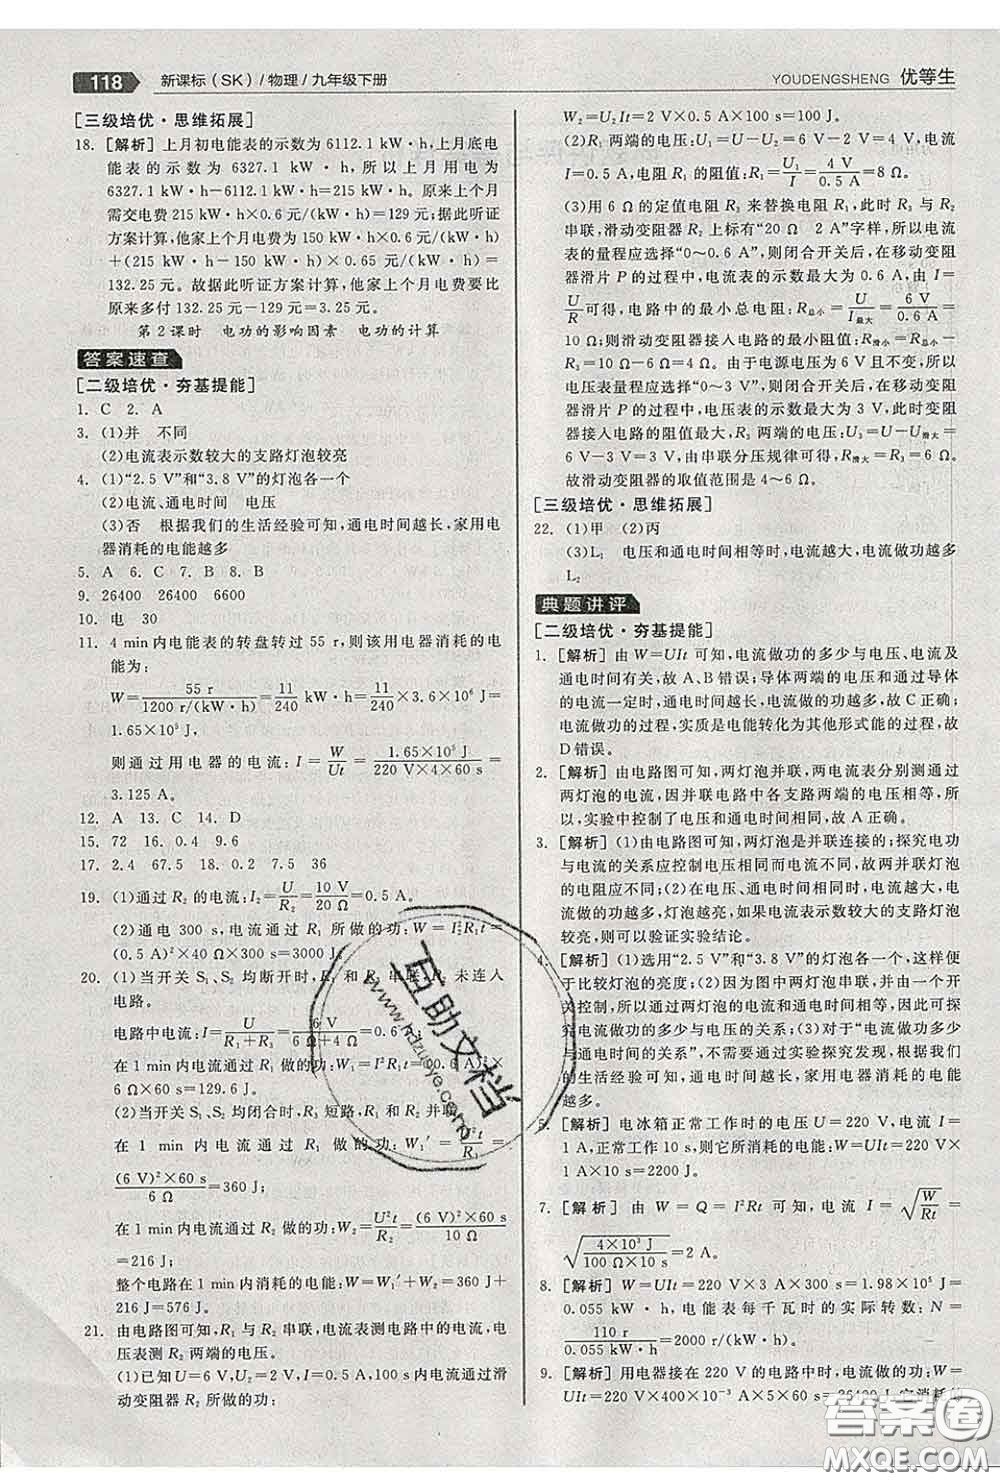 118 新课标（SK）/物理/九年级下册
YOUDENGSHENG 优等生
[三级培优·思维拓展]
18. [解析] 上月初电能表的示数为 6112.1 kW·h，上月底电
能表的示数为 6327.1 kW·h，所以上月用电为
6327.1 kW·h－6112.1 kW·h＝215 kW·h。原来上个月
需交电费 215 kW·h×0.6 元/(kW·h)＝129 元；据此听证
方案计算，他家上个月电费为 150 kW·h×0.6 元/(kW·h)
＋(215 kW·h－150 kW·h)×0.65 元/(kW·h)＝
132.25 元。故据此听证方案计算，他家上个月电费要比
原来多付 132.25 元－129 元＝3.25 元。
第 2 课时 电功的影响因素 电功的计算
答案速查
[二级培优·夯基提能]
1. C 2. A
3. (1)并 不同
(2)电流表示数较大的支路灯泡较亮
4. (1)“2.5 V”和“3.8 V”的灯泡各一个
(2)电流、通电时间 电压
(3)否 根据我们的生活经验可知，通电时间越长，家用电
器消耗的电能越多
5. A 6. C 7. B 8. C
9. 26400 26400 6600
10. 电 30
11. 4 min 内电能表的转盘转过 55 r，则该用电器消耗的电
能为：
W＝55 r/1200 r/(kW·h)＝11/240 kW·h＝11/240×3.6×10⁶ J＝
1.65×10⁵ J，
则通过用电器的电流：I＝W/Ut＝1.65×10⁵ J/220 V×4×60 s＝
3.125 A。
12. A 13. C 14. D
15. 72 16. 0.4 9.6
17. 2.4 67.5 18. 0.2 7.5 36
19. (1)通过 R₂ 的电流：I₂＝U/R₂＝10 V/20 Ω＝0.5 A。
(2)通电 300 s，电流通过 R₁ 所做的功：W＝I₂²R₁t＝
(0.5 A)²×40 Ω×300 s＝3000 J。
20. (1)当开关 S₁、S₂ 均断开时，R₁ 和 R₃ 串联，R₂ 未连入
电路。
电路中电流：I＝U/R₁＋R₃＝6 V/6 Ω＋4 Ω＝0.6 A；
在 1 min 内电流通过 R₁ 做的功：W₁＝I²R₁t＝(0.6 A)²×
6 Ω×60 s＝129.6 J。
(2)当开关 S₁、S₂ 均闭合时，R₃ 短路，R₁ 和 R₂ 并联。
在 1 min 内电流通过 R₁ 做的功：W₁′＝U²t/R₁＝
(6 V)²×60 s/6 Ω＝360 J；
在 1 min 内电流通过 R₂ 做的功：W₂＝U²t/R₂＝(6 V)²×60 s/10 Ω
＝216 J；
整个电路在 1 min 内消耗的电能：W＝W₁′＋W₂＝360 J＋
216 J＝576 J。
21. 由电路图可知，R₁ 与 R₂ 串联，电流表测电路中的电流，电
压表测 R₂ 两端的电压。
(1)已知 U＝6 V，U₂＝2 V，则闭合开关后，电流通过滑
动变阻器 R₂ 所做的功：
W₂＝U₂It＝2 V×0.5 A×100 s＝100 J。
(2)R₁ 两端的电压：U₁＝U－U₂＝6 V－2 V＝4 V，电流
I＝0.5 A，电阻 R₁ 的阻值：R₁＝U₁/I＝4 V/0.5 A＝8 Ω。
(3)用 6 Ω 的定值电阻 R₃ 来替换电阻 R₁，此时 R₃ 与 R₂
串联，滑动变阻器 R₂ 上标有“20 Ω 2 A”字样，所以电流
表的量程应选择“0～0.6 A”，则闭合开关后，在移动变阻
器滑片 P 的过程中，电流表的示数最大为 0.6 A，由 I＝
U/R可得，电路中的最小总电阻：R总小＝U/I最大＝6 V/0.6 A＝
10 Ω；则滑动变阻器接入电路的最小阻值：R滑小＝R总小
－R₃＝10 Ω－6 Ω＝4 Ω。由于电源电压为 6 V 且不变，
电压表量程应选择“0～3 V”，即闭合开关后，在移动变阻
器滑片 P 的过程中，电压表的示数最大为 3 V，此时变阻
器接入电路的阻值最大，R₃ 两端的电压：U₃＝U－U滑大＝
6 V－3 V＝3 V，由串联分压规律可得：R滑大＝R₃＝6 Ω。
故滑动变阻器的取值范围是 4～6 Ω。
[三级培优·思维拓展]
22. (1)甲 (2)丙
(3)L₁ 电压和通电时间相等时，电流越大，电流做功越多
L₂
典题讲评
[二级培优·夯基提能]
1. [解析] 由 W＝UIt 可知，电流做功的多少与电压、电流及
通电时间有关，故 A、B 错误；导体两端的电压和通过导体
的电流一定时，通电时间越长，电流做功越多，故 C 正确；
电流做功的过程，实质是电能转化为其他形式能的过程，故
D 错误。
2. [解析] 由电路图可知，两灯泡并联，两电流表分别测通过
两灯泡的电流，因并联电路中各支路两端的电压相等，所
以，实验中控制了电压和通电时间相等，故 A 正确。
3. [解析] (1)由电路图可知，两灯泡是并联连接的；探究电功
与电流的关系应控制电压相同而电流不同，故两并联灯泡
的电阻应不同。(2)在电压、通电时间相同时，电流越大，电
流做功越多，灯泡越亮，如果电流表示数较大的支路灯泡
较亮，则可以验证实验结论。
4. [解析] (1)选用“2.5 V”和“3.8 V”的灯泡各一个，这样便
于比较灯泡的亮度；(2)因为图中两灯泡串联，且由一个开
关控制，所以通过两灯泡的电流和通电时间相等，因此可探
究电流做功的多少与电压的关系；(3)对于“电流做功多少
与通电时间的关系”，不需要通过实验探究发现，根据我们
的生活经验可知，通电时间越长，家用电器消耗的电能越
多。
5. [解析] 电冰箱正常工作时的电压 U＝220 V，电流 I＝
1 A，正常工作 10 s，则它所消耗的电能：W＝UIt＝220 V×
1 A×10 s＝2200 J。
7. [解析] 由 W＝Q＝I²Rt 可知，电流 I＝√W/Rt＝
√4×10³ J/100 Ω×10 s＝2 A。
8. [解析] W＝UIt＝220 V×3 A×5×60 s＝1.98×10⁵ J＝
0.055 kW·h，电能表每千瓦时的实际转数：N＝
110 r/0.055 kW·h＝2000 r/(kW·h)。
9. [解析] 用电器接在 220 V 的电路中时，电流做的功：W＝
UIt＝220 V×400×10⁻³ A×5×60 s＝26400 J，它消耗的
互助文档
答案圈
MXQE.COM